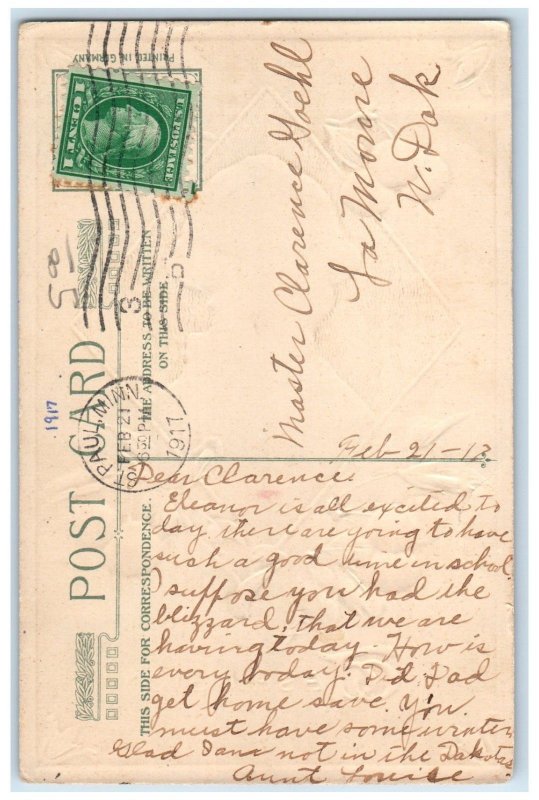 POST CARD
PRINTED IN GERMANY
U.S. POSTAGE
1 ONE CENT 1
ST PAUL, MINN.
FEB 21
630 PM
1917
3
5
1917
5.00
THE ADDRESS TO BE WRITTEN
ON THIS SIDE
Master Clarence Goehl
La Moure
N. Dak
THIS SIDE FOR CORRESPONDENCE.
Feb-21-17
Dear Clarence;
Eleanor is all excited to
day, there are going to have
such a good time in school.
I suppose you had the
blizzard, that we are
having today. How is
every body. Did Dad
get home save. You
must have some winter
Glad I am not in the Dakotas
Aunt Louise